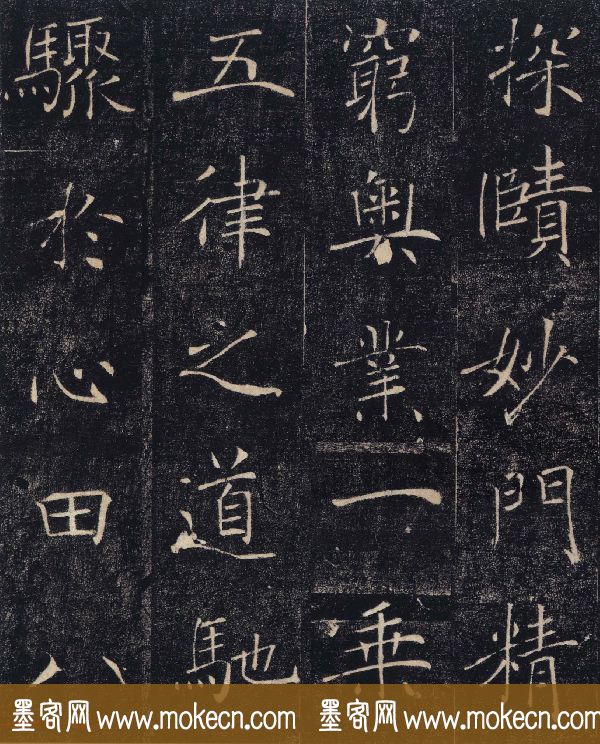 探賾妙門精
窮奧業一乘
五律之道馳
驟於心田八
墨客网 www.mokecn.com 墨客网 www.mokecn.com